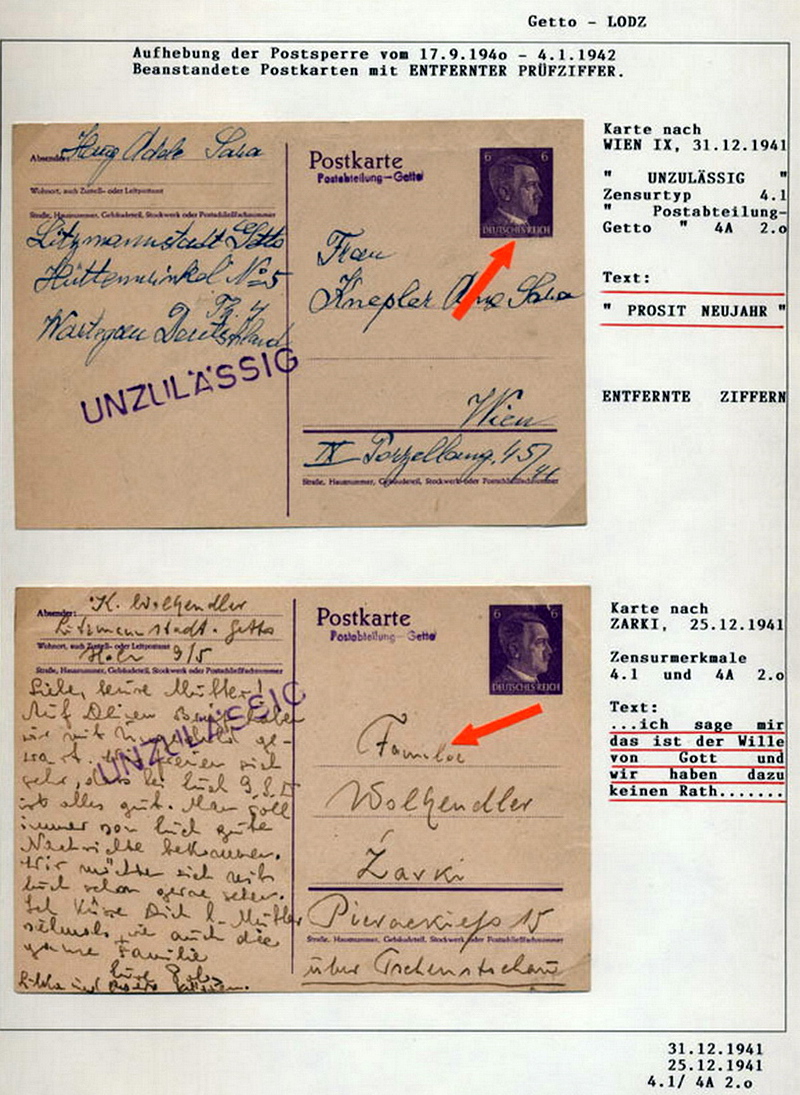 Getto - LODZ
Aufhebung der Postsperre vom 17.9.194o - 4.1.1942
Beanstandete Postkarten mit ENTFERNTER PRÜFZIFFER.
Absender: Adele Sara
Wohnort, auch Zustell- oder Leitpostamt
Straße, Hausnummer, Gebäudeteil, Stockwerk oder Postschließfachnummer
Litzmannstadt Getto
No 5
Wartegau Deutschland
UNZULÄSSIG
Postkarte
Postabteilung-Getto
6 6
DEUTSCHES REICH
Frau
Knepler Sara
Wien
IX 45/
Straße, Hausnummer, Gebäudeteil, Stockwerk oder Postschließfachnummer
Karte nach
WIEN IX, 31.12.1941
" UNZULÄSSIG "
Zensurtyp 4.1
" Postabteilung-
Getto " 4A 2.o
Text:
" PROSIT NEUJAHR "
ENTFERNTE ZIFFERN
Absender: K. Wolhendler
Litzmannstadt-Getto
Wohnort, auch Zustell- oder Leitpostamt
9/5
Straße, Hausnummer, Gebäudeteil, Stockwerk oder Postschließfachnummer
Liebe, teure Mutter!
Auf Deinen
wir mit
sich
ist alles gut. Man soll
immer von Euch gute
Nachrichte bekommen.
Wir möchten sich mit
Euch schon gerne sehen.
Ich küsse Dich l. Mutter
wie auch die
ganze Familie
UNZULÄSSIG
Postkarte
Postabteilung-Getto
6 6
DEUTSCHES REICH
Familie
Wolhendler
Żarki
15
Straße, Hausnummer, Gebäudeteil, Stockwerk oder Postschließfachnummer
über Tschenstochau
Karte nach
ZARKI, 25.12.1941
Zensurmerkmale
4.1 und 4A 2.o
Text:
...ich sage mir
das ist der Wille
von Gott und
wir haben dazu
keinen Rath.......
31.12.1941
25.12.1941
4.1/ 4A 2.o